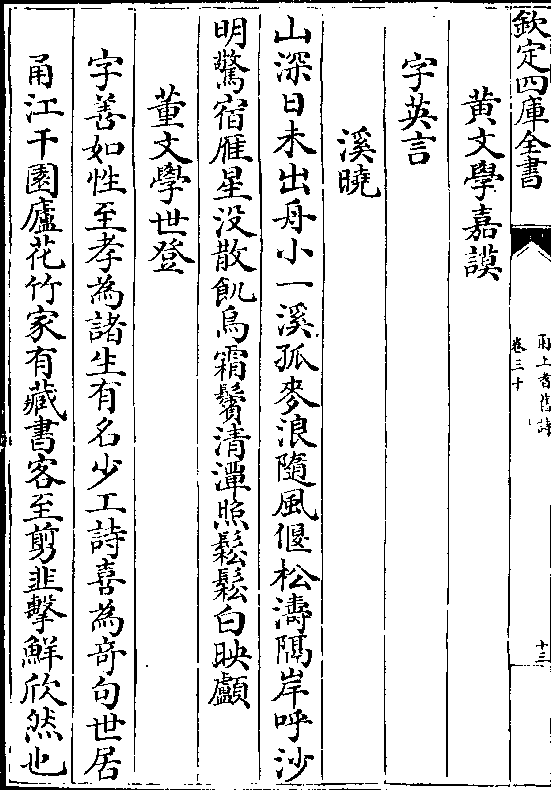 欽定四庫全書
甬上耆舊詩
卷三十
十三
黃文學嘉謨
字英言
溪曉
山深日未出舟小一溪孤麥浪隨風偃松濤隔岸呼沙
明驚宿雁星没散飢烏霜鬢清潭照鬆鬆白映顱
董文學世登
字善如性至孝為諸生有名少工詩喜為竒句世居
甬江干園廬花竹家有藏書客至剪韭擊鮮欣然也